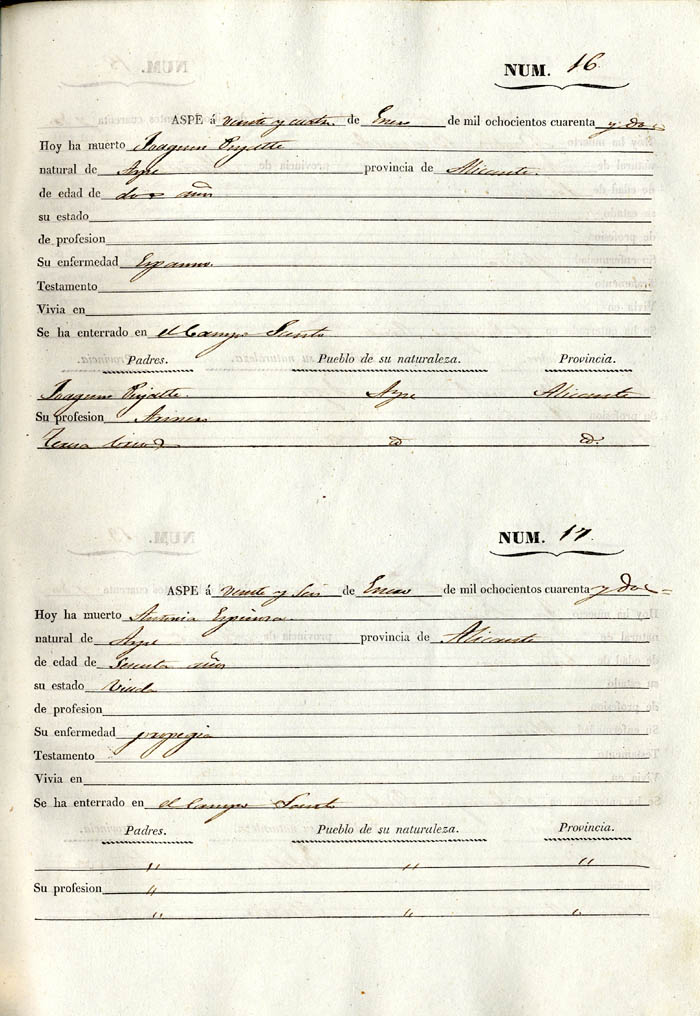 NUM. 16
ASPE á veinte y cuatro de Enero de mil ochocientos cuarenta y dos
Hoy ha muerto Joaquin
natural de Aspe provincia de Alicante.
de edad de dos años
su estado
de profesion
Su enfermedad Espasmo.
Testamento
Vivia en
Se ha enterrado en el Campo Santo
Padres. Pueblo de su naturaleza. Provincia.
Joaquin Aspe Alicante
Su profesion
Teresa id id.
NUM. 17
ASPE á veinte y seis de Enero de mil ochocientos cuarenta y dos=
Hoy ha muerto Antonia Espinosa
natural de Aspe provincia de Alicante
de edad de años
su estado Viuda
de profesion
Su enfermedad
Testamento
Vivia en
Se ha enterrado en el Campo Santo
Padres. Pueblo de su naturaleza. Provincia.
" " "
Su profesion "
" " "